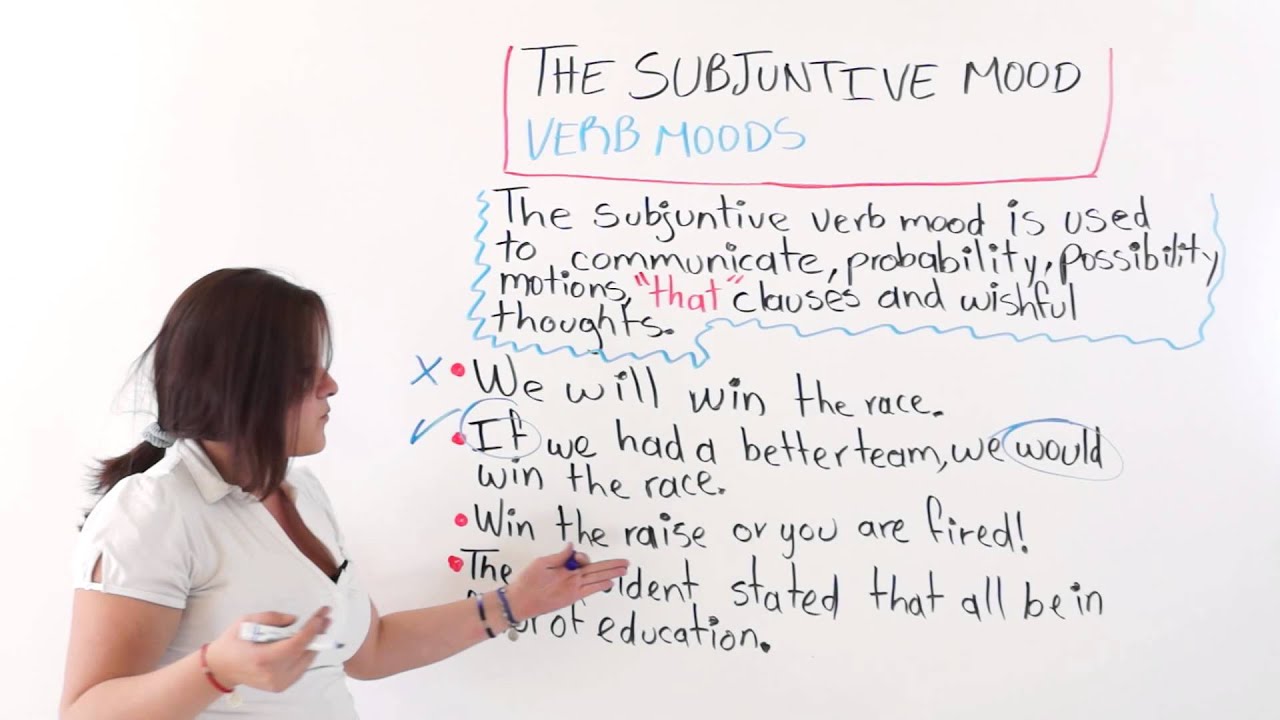 THE SUBJUNTIVE MOOD
VERB MOODS
The subjuntive verb mood is used
to communicate, probability, possibility
motions, "that" clauses and wishful
thoughts.
x • We will win the race.
✓ • If we had a better team, we would
win the race.
• Win the raise or you are fired!
• The stated that all be in
of education.